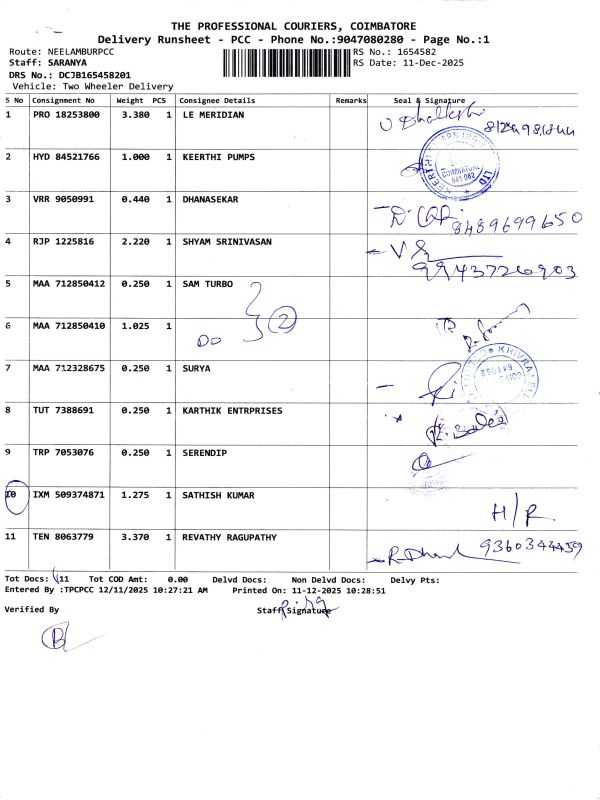 THE PROFESSIONAL COURIERS, COIMBATORE
Delivery Runsheet - PCC - Phone No.:9047080280 - Page No.:1
Route: NEELAMBURPCC
RS No.: 1654582
Staff: SARANYA
RS Date: 11-Dec-2025
DRS No.: DCJB165458201
Vehicle: Two Wheeler Delivery
S No Consignment No Weight PCS Consignee Details Remarks Seal & Signature
1 PRO 18253800 3.380 1 LE MERIDIAN
2 HYD 84521766 1.000 1 KEERTHI PUMPS
COIMBATORE
641 062
LTD
3 VRR 9050991 0.440 1 DHANASEKAR
8489699650
4 RJP 1225816 2.220 1 SHYAM SRINIVASAN
9943726903
5 MAA 712850412 0.250 1 SAM TURBO
2
6 MAA 712850410 1.025 1
Do
7 MAA 712328675 0.250 1 SURYA
KHIVRAJ
641062
8 TUT 7388691 0.250 1 KARTHIK ENTRPRISES
9 TRP 7053076 0.250 1 SERENDIP
10 IXM 509374871 1.275 1 SATHISH KUMAR
H/R
11 TEN 8063779 3.370 1 REVATHY RAGUPATHY
9360344459
Tot Docs: 11 Tot COD Amt: 0.00 Delvd Docs: Non Delvd Docs: Delvy Pts:
Entered By :TPCPCC 12/11/2025 10:27:21 AM Printed On: 11-12-2025 10:28:51
Verified By Staff Signature